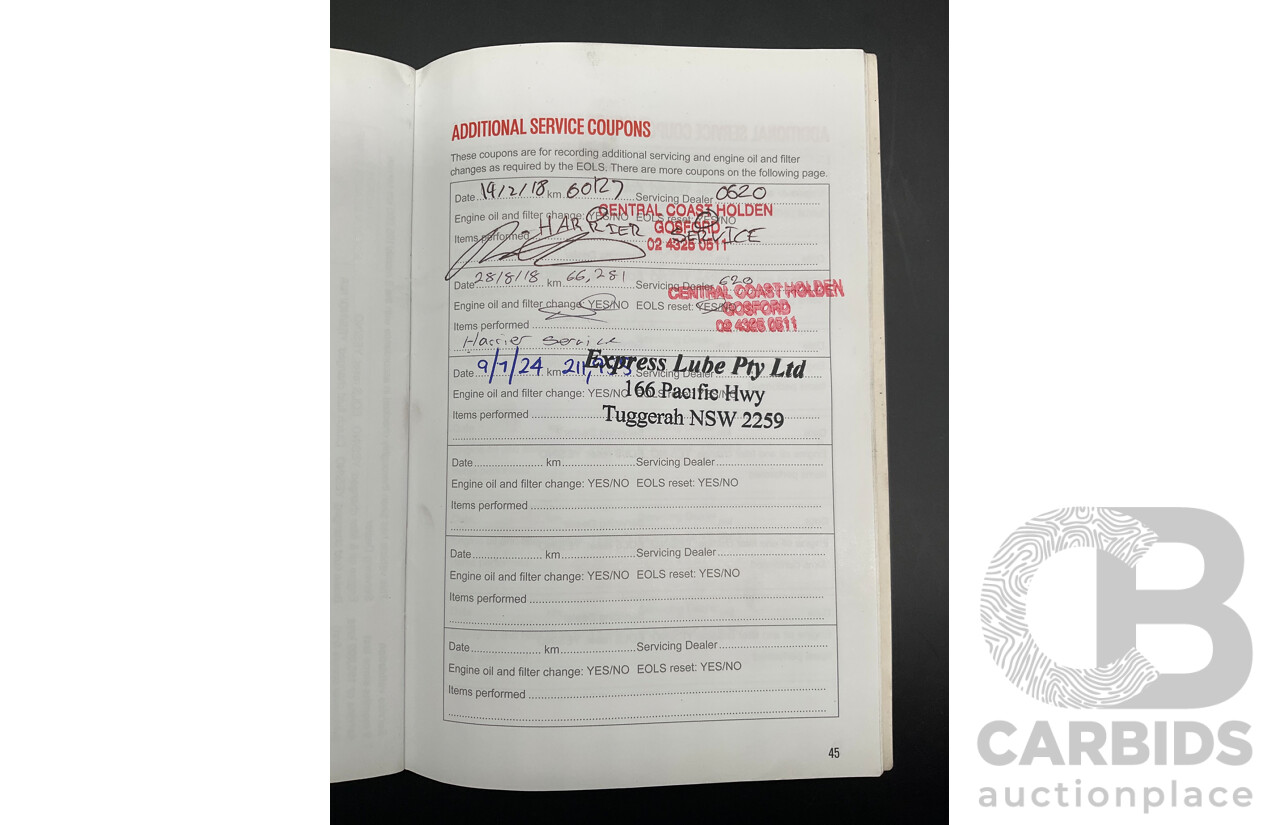 ADDITIONAL SERVICE COUPONS
These coupons are for recording additional servicing and engine oil and filter
changes as required by the EOLS. There are more coupons on the following page.
Date 19/2/18 km 60127 Servicing Dealer 0620
Engine oil and filter change: YES/NO EOLS reset: YES/NO
CENTRAL COAST HOLDEN
GOSFORD
02 4325 0511
Items performed HARRIER SERVICE
Date 28/8/18 km 66,281 Servicing Dealer 620
CENTRAL COAST HOLDEN
GOSFORD
02 4325 0511
Engine oil and filter change YES/NO EOLS reset: YES/NO
Items performed
Harrier Service
Date 9/7/24 km Servicing Dealer
Express Lube Pty Ltd
166 Pacific Hwy
Tuggerah NSW 2259
Engine oil and filter change: YES/NO EOLS reset: YES/NO
Items performed
Date km Servicing Dealer
Engine oil and filter change: YES/NO EOLS reset: YES/NO
Items performed
Date km Servicing Dealer
Engine oil and filter change: YES/NO EOLS reset: YES/NO
Items performed
Date km Servicing Dealer
Engine oil and filter change: YES/NO EOLS reset: YES/NO
Items performed
45
CB
CARBIDS
auctionplace